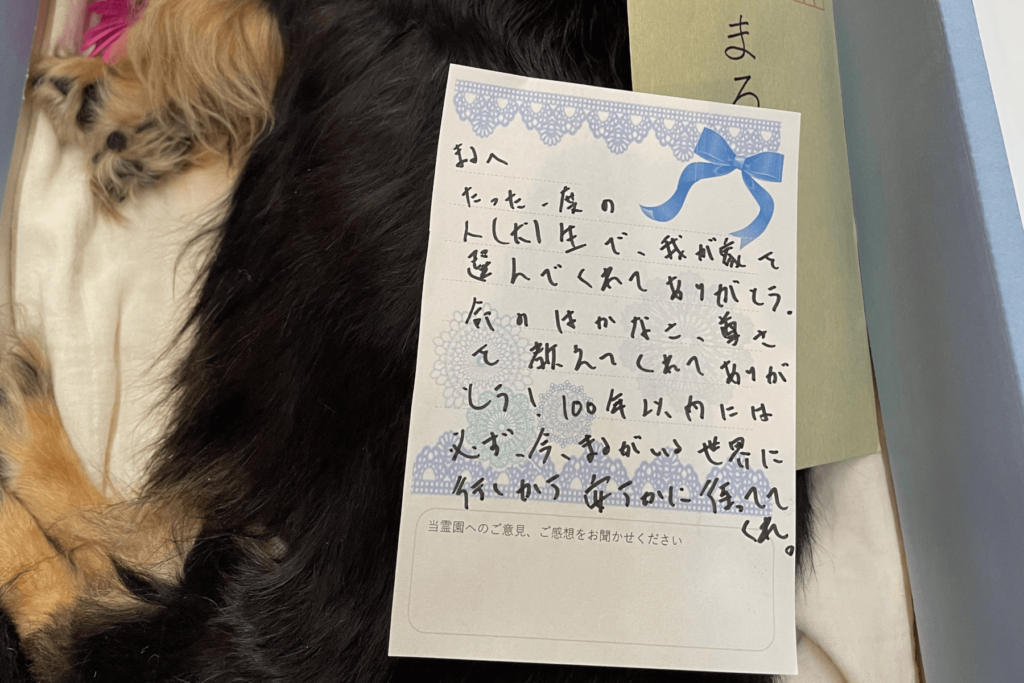 まろ
まるへ
たった一度の
人(犬)生で、我が家を
選んでくれてありがとう.
命のはかなさ、尊さ
を教えてくれてありが
とう! 100年以内には
必ず、今、まるがいる世界に
行くから 安らかに待ってて
くれ。
当霊園へのご意見、ご感想をお聞かせください